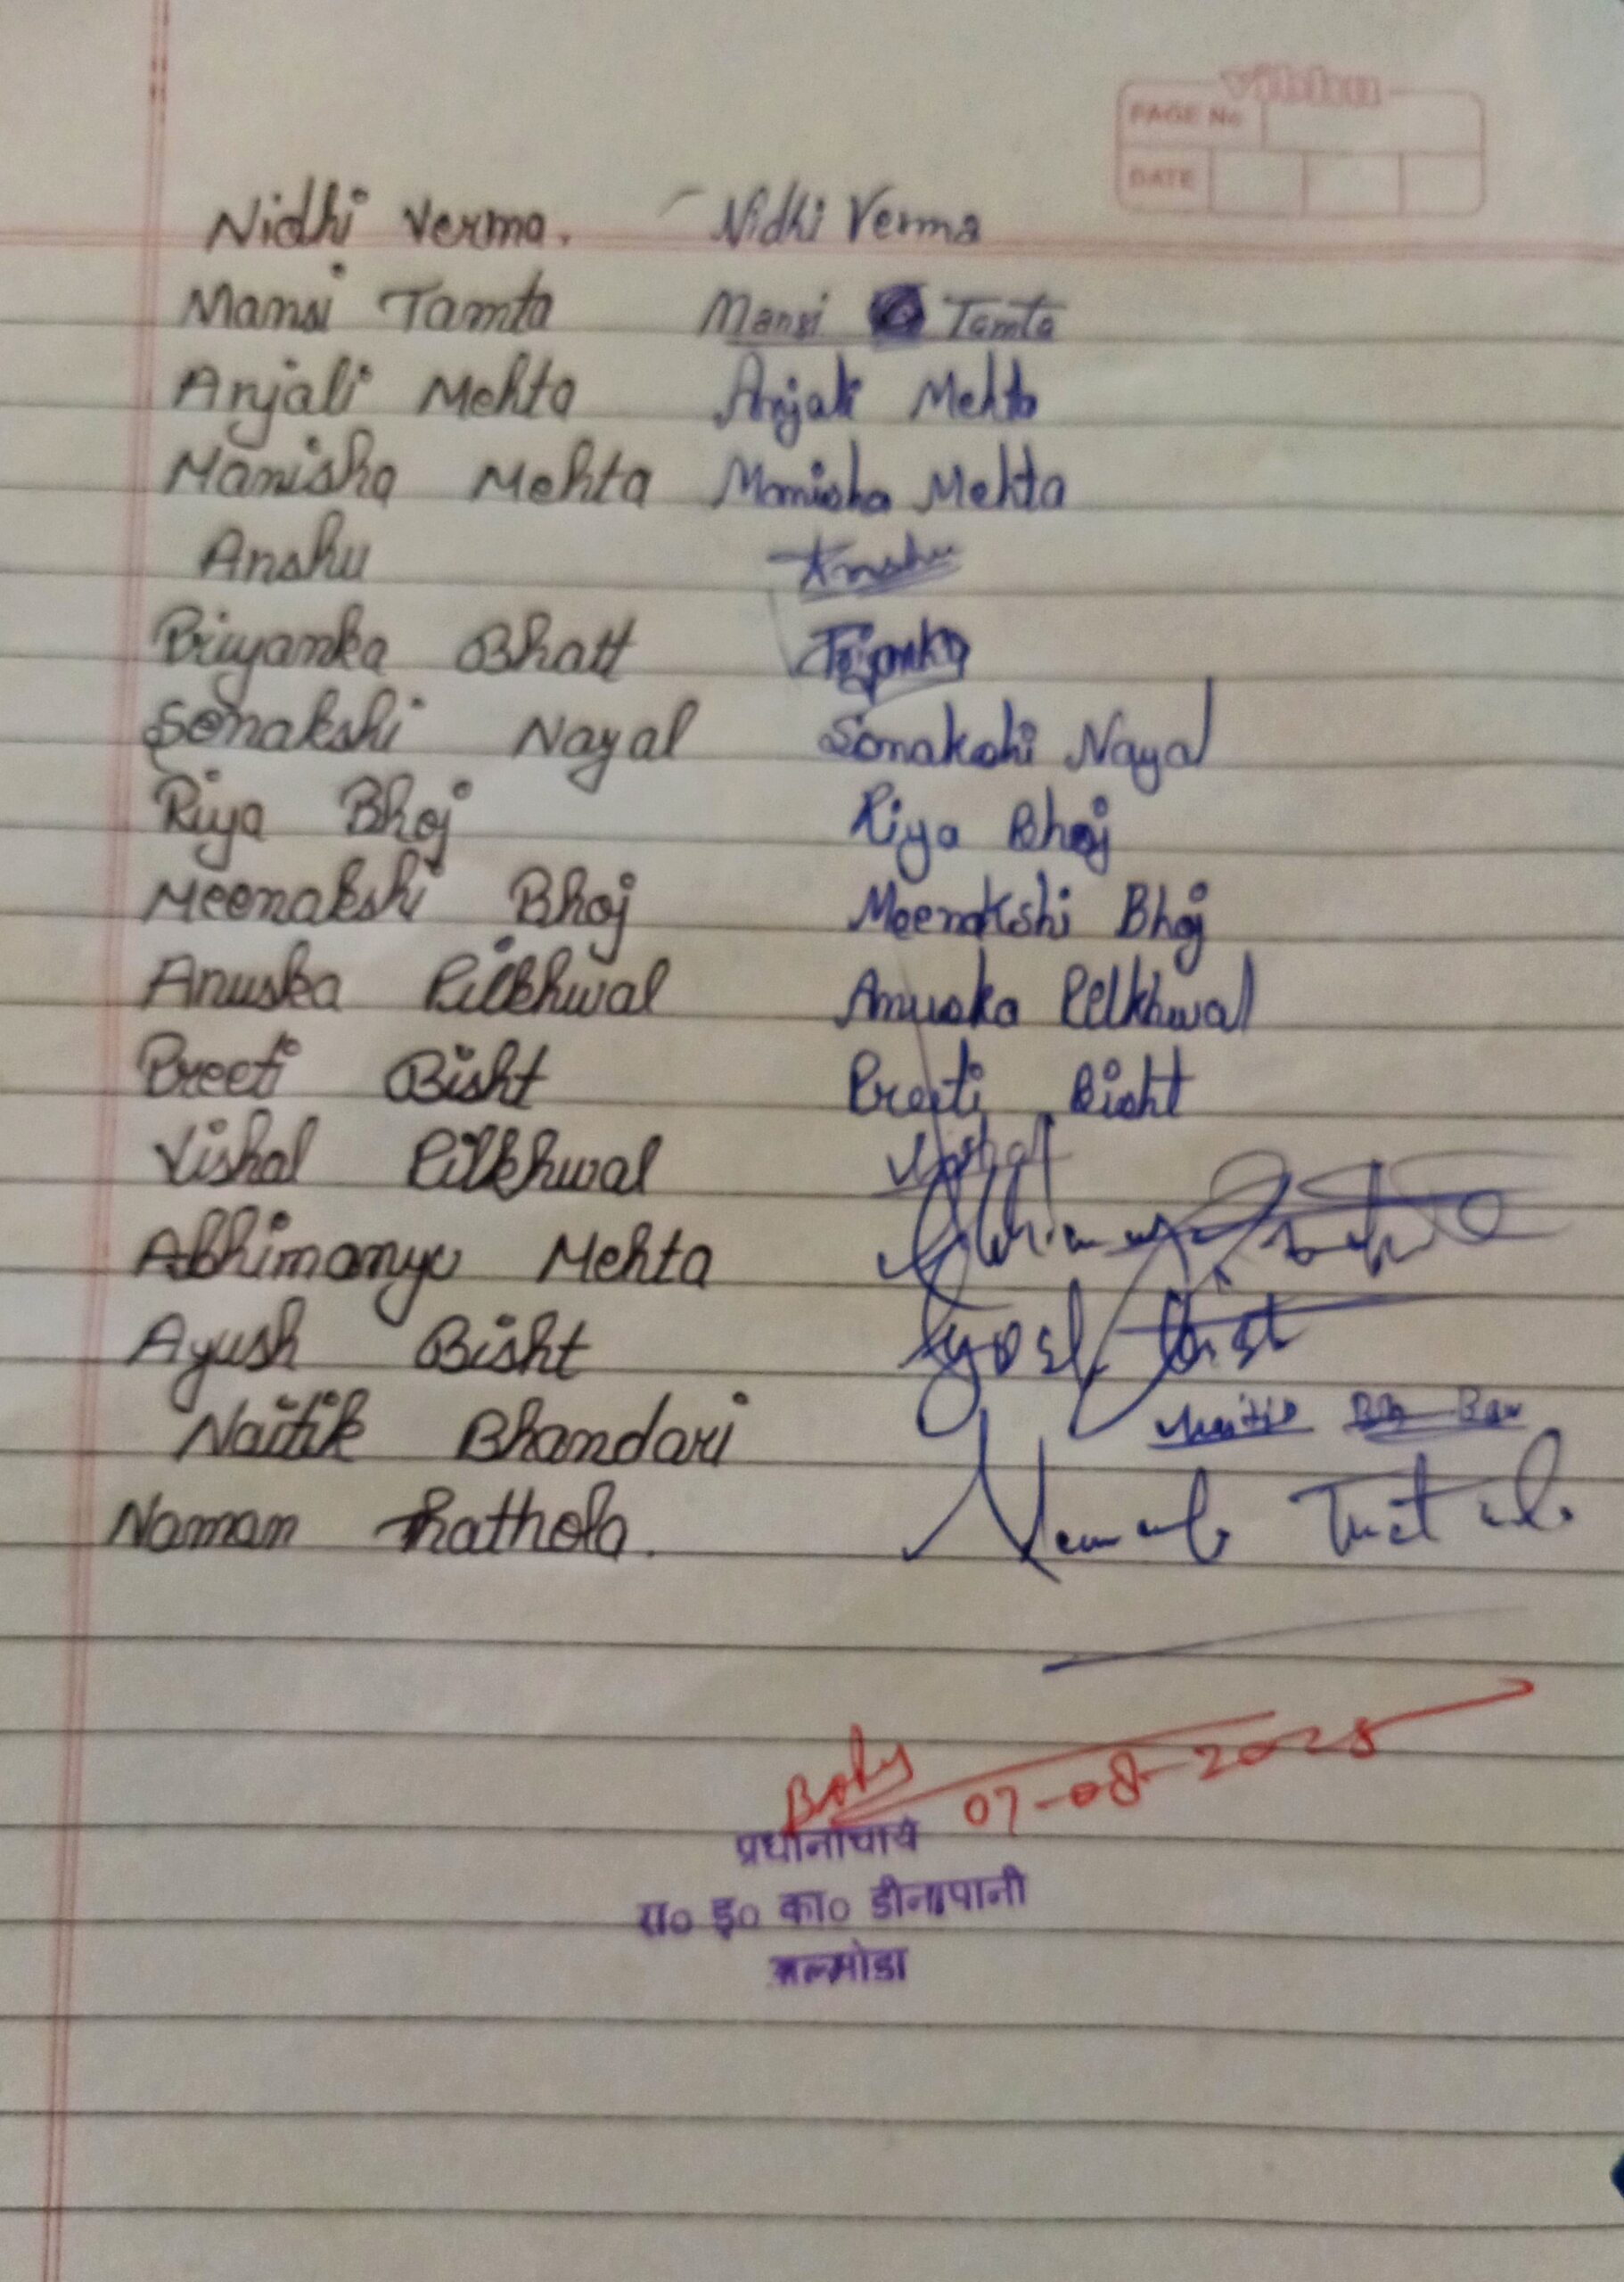 vibhu
PAGE No
DATE
Nidhi Verma. Nidhi Verma
Mansi Tamta Mansi Tamta
Anjali Mehta Anjali Mehta
Manisha Mehta Manisha Mehta
Anshu Anshu
Priyanka Bhatt
Sonakshi Nayal Sonakshi Nayal
Riya Bhoj Riya Bhoj
Meenakshi Bhoj Meenakshi Bhoj
Anuska Pilkhwal Anuska Pilkhwal
Preeti Bisht Preeti Bisht
Vishal Pilkhwal Vishal
Abhimanyu Mehta
Ayush Bisht
Naitik Bhandari
Naman
07-08-2025
प्रधानाचार्य
रा० इ० का० डीनापानी
अल्मोडा